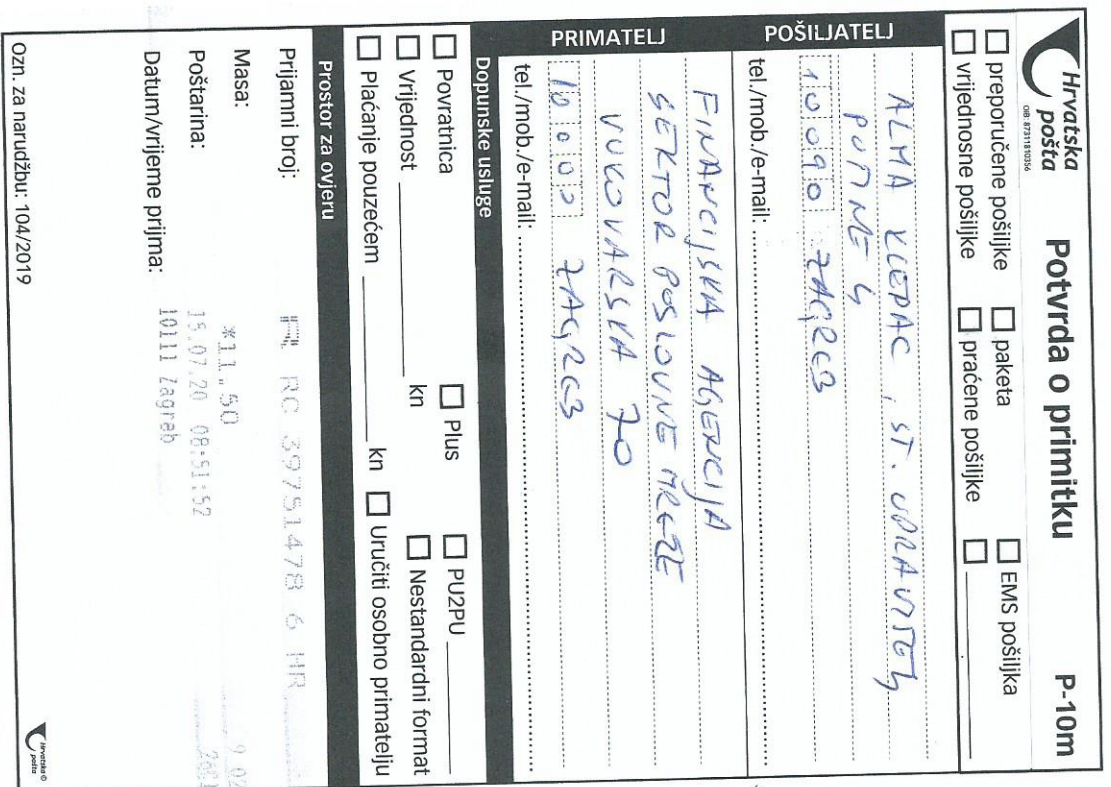 Hrvatska
pošta
OIB: 87311810356
Potvrda o primitku P-10m
preporučene pošiljke paketa EMS pošiljka
vrijednosne pošiljke praćene pošiljke
POŠILJATELJ
ALMA KLEPAC, ST. UPRAVITELJ
10090 ZAGREB
tel./mob./e-mail:
PRIMATELJ
FINANCIJSKA AGENCIJA
SEKTOR POSLOVNE MREŽE
VUKOVARSKA 70
10000 ZAGREB
tel./mob./e-mail:
Dopunske usluge
Povratnica Plus PU2PU
Vrijednost kn Nestandardni format
Plaćanje pouzećem kn Uručiti osobno primatelju
Prostor za ovjeru
Prijamni broj: RC 39751478 6 HR
Masa: *11.50
Poštarina: 15.07.20 08:51:52
Datum/vrijeme prijma: 10111 Zagreb
Ozn. za narudžbu: 104/2019
Hrvatska
pošta